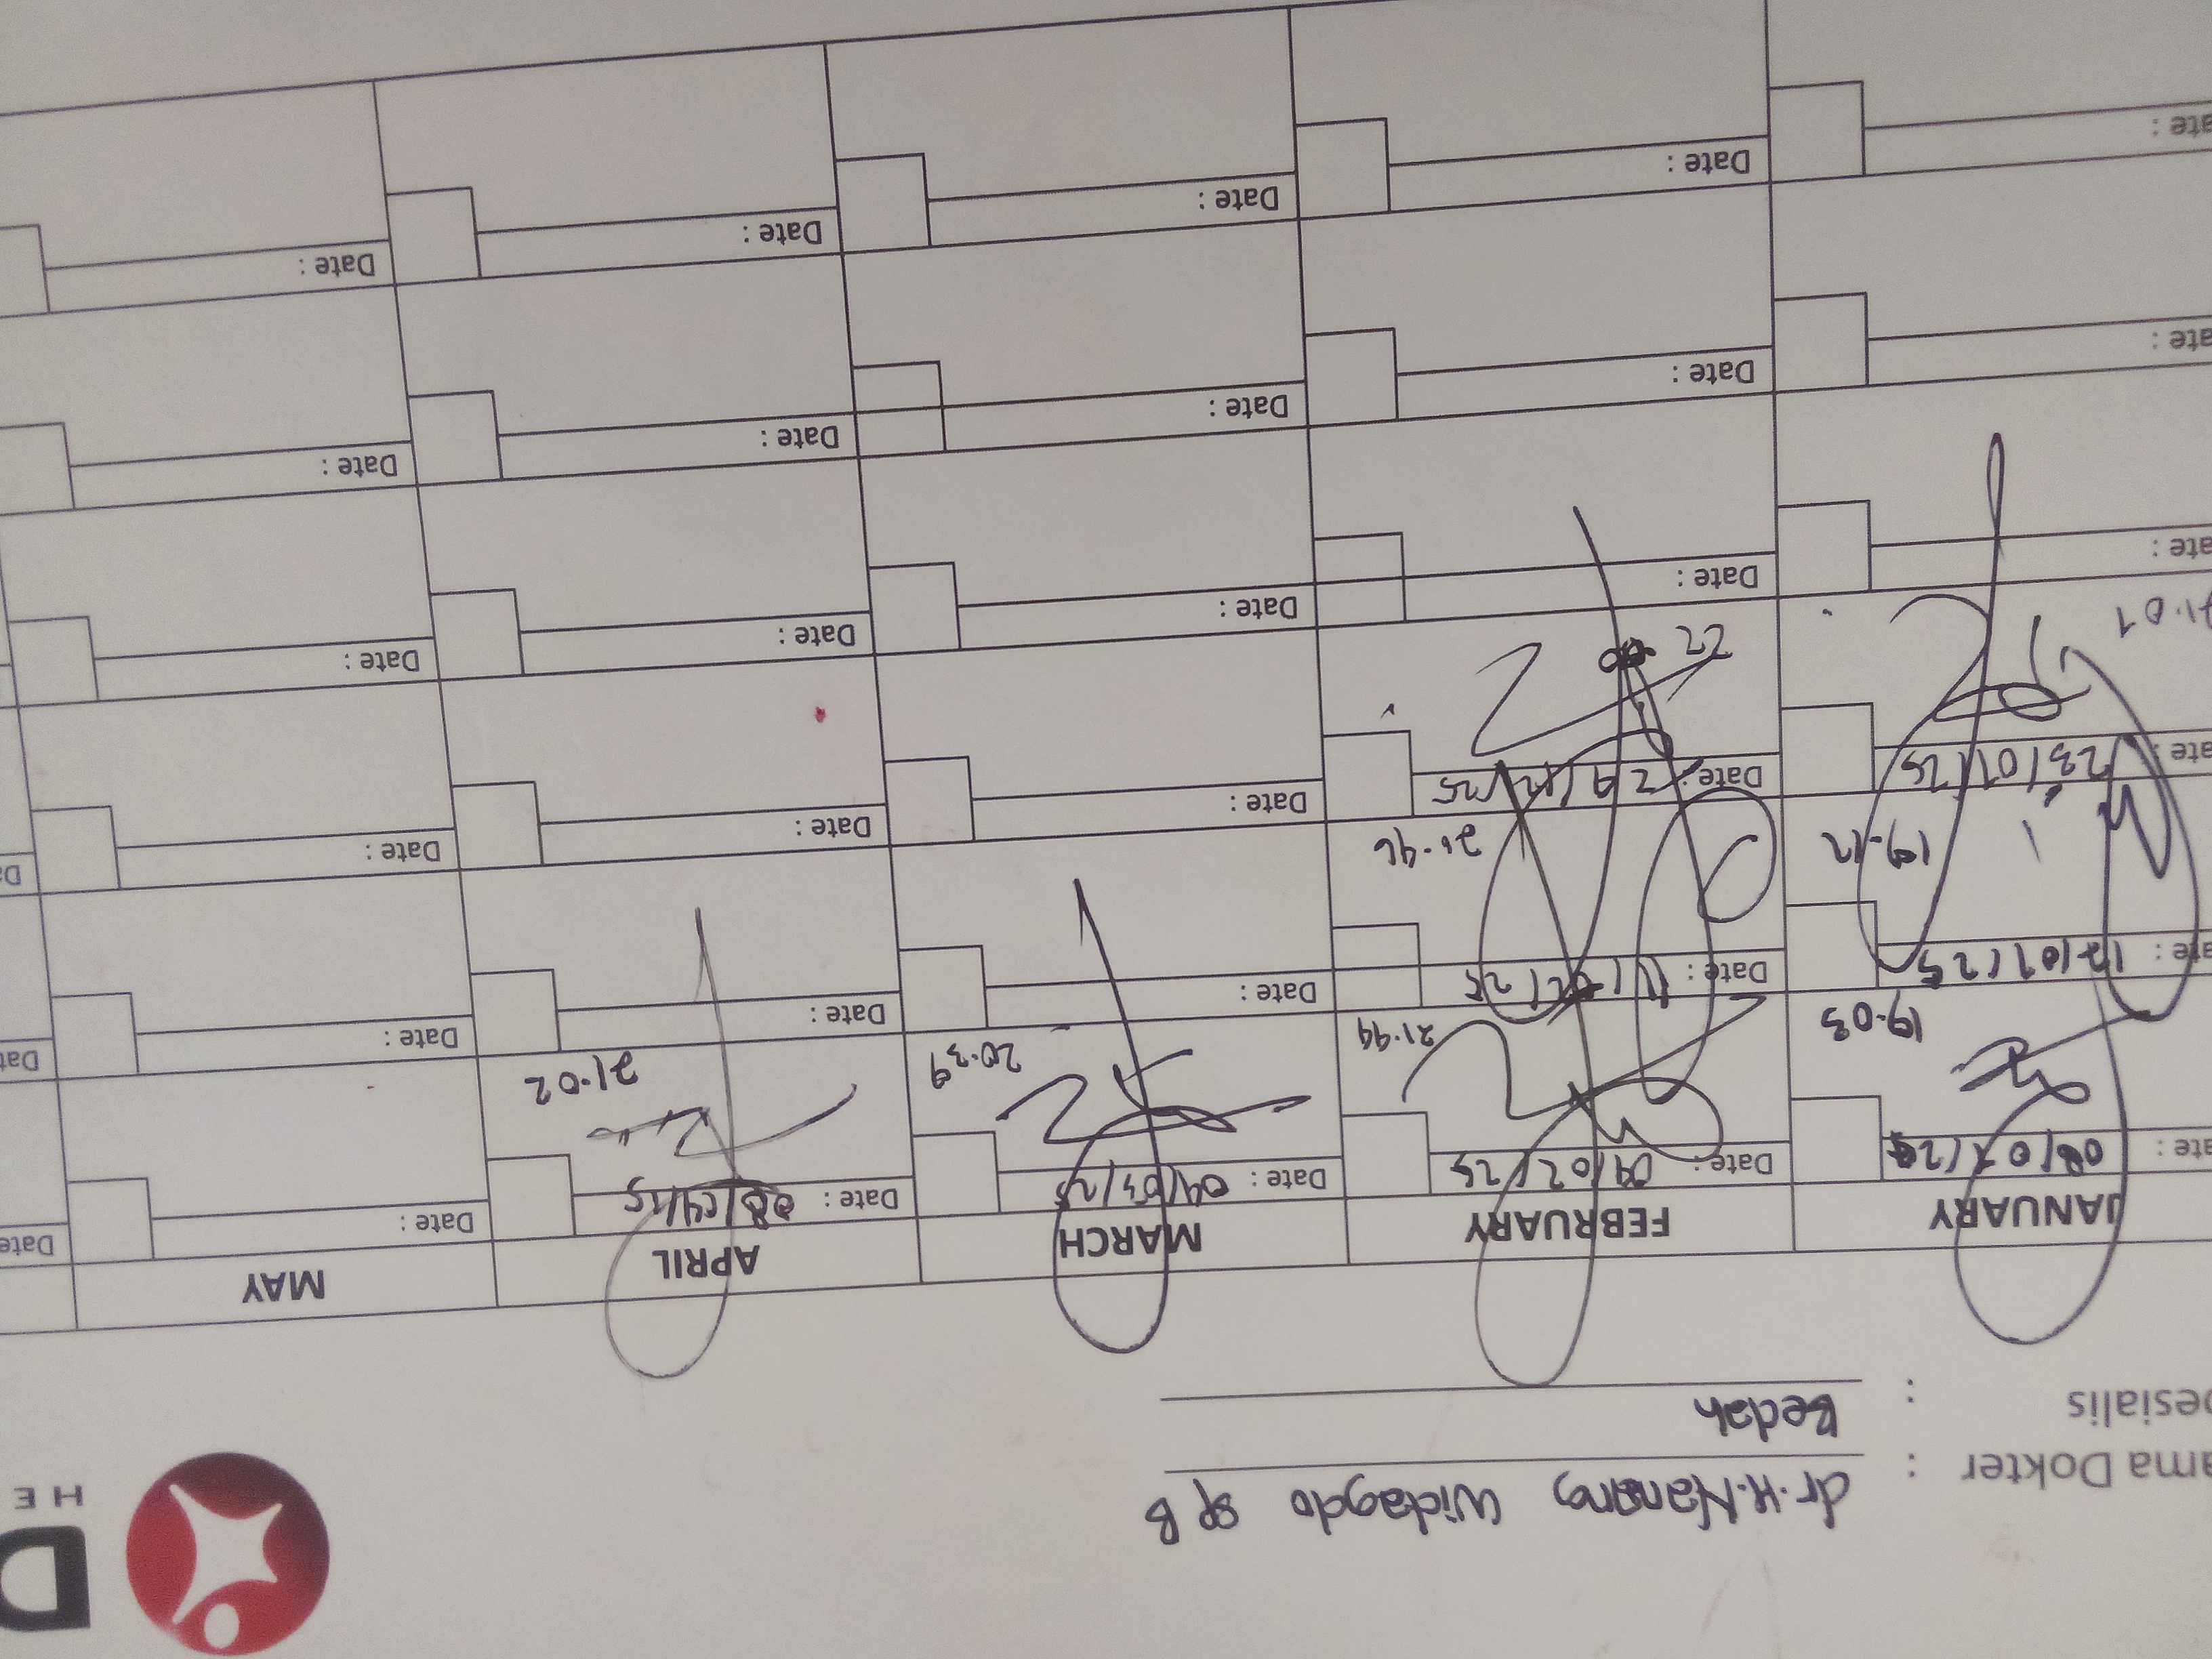 D
HE
ama Dokter : dr. H. Nanang Widagdo SpB
pesialis : Bedah
JANUARY FEBRUARY MARCH APRIL MAY
ate : Date : 04/02/25 Date : 04/03/25 Date : 08/04/25 Date : Date
19.03 21.44 20.39 21.02
ate : 12/01/25 Date : 11/02/25 Date : Date : Date : Date
19.12 20.46
ate : 23/01/25 Date : Date : Date : Date : Da
21.01 22
ate : Date : Date : Date : Date :
ate : Date : Date : Date : Date :
ate : Date : Date : Date : Date :